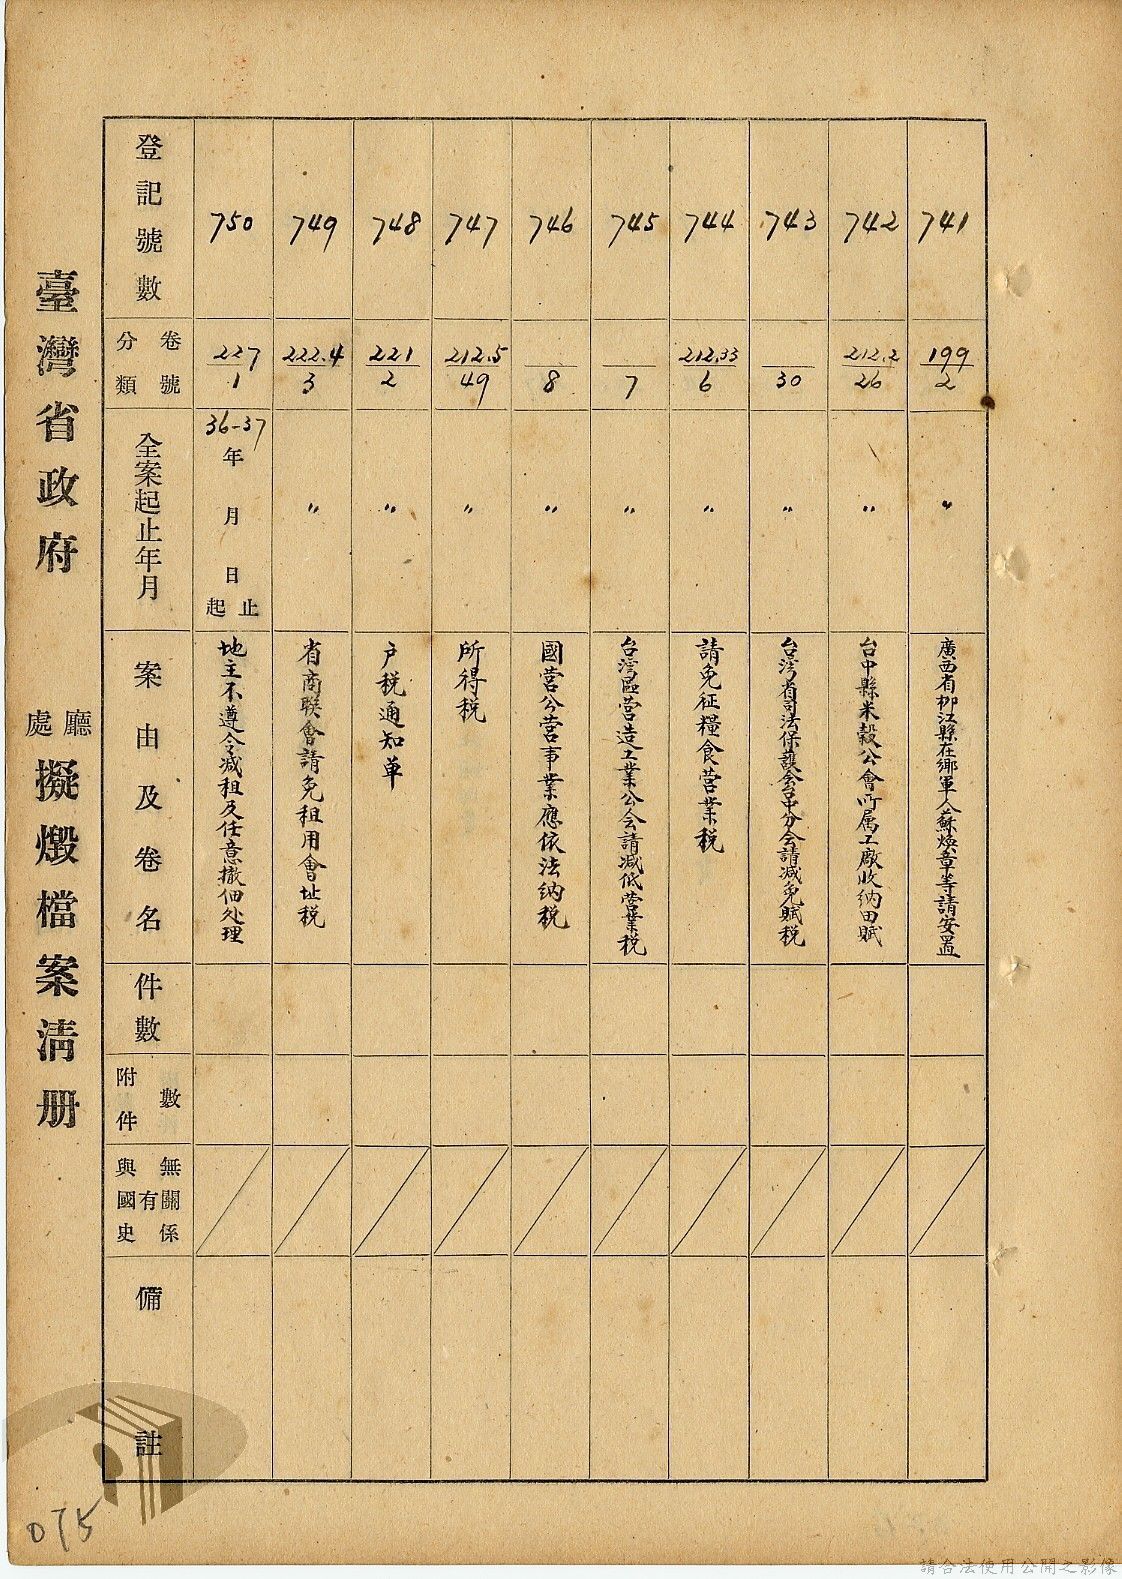 臺灣省政府 廳處 擬燬檔案清册
登記號數
分類 卷號
全案起止年月
案由及卷名
件數
附件 數
與國史 有無關係
備註
750
227/1
36-37年 月 日 起止
地主不遵令减租及任意撤佃处理
749
222.4/3
〃
省商联會請免租用會址税
748
221/2
〃
户税通知单
747
212.5/49
〃
所得税
746
8
〃
國营公营事業應依法納税
745
7
〃
台湾區营造工業公会請减低营業税
744
212.33/6
〃
請免征糧食营業税
743
30
〃
台湾省司法保護会台中分会請减免賦税
742
212.2/26
〃
台中縣米穀公會所属工廠收納田賦
741
199/2
〃
廣西省柳江縣在鄉軍人蘇焕章等請安置
075
請合法使用公開之影像